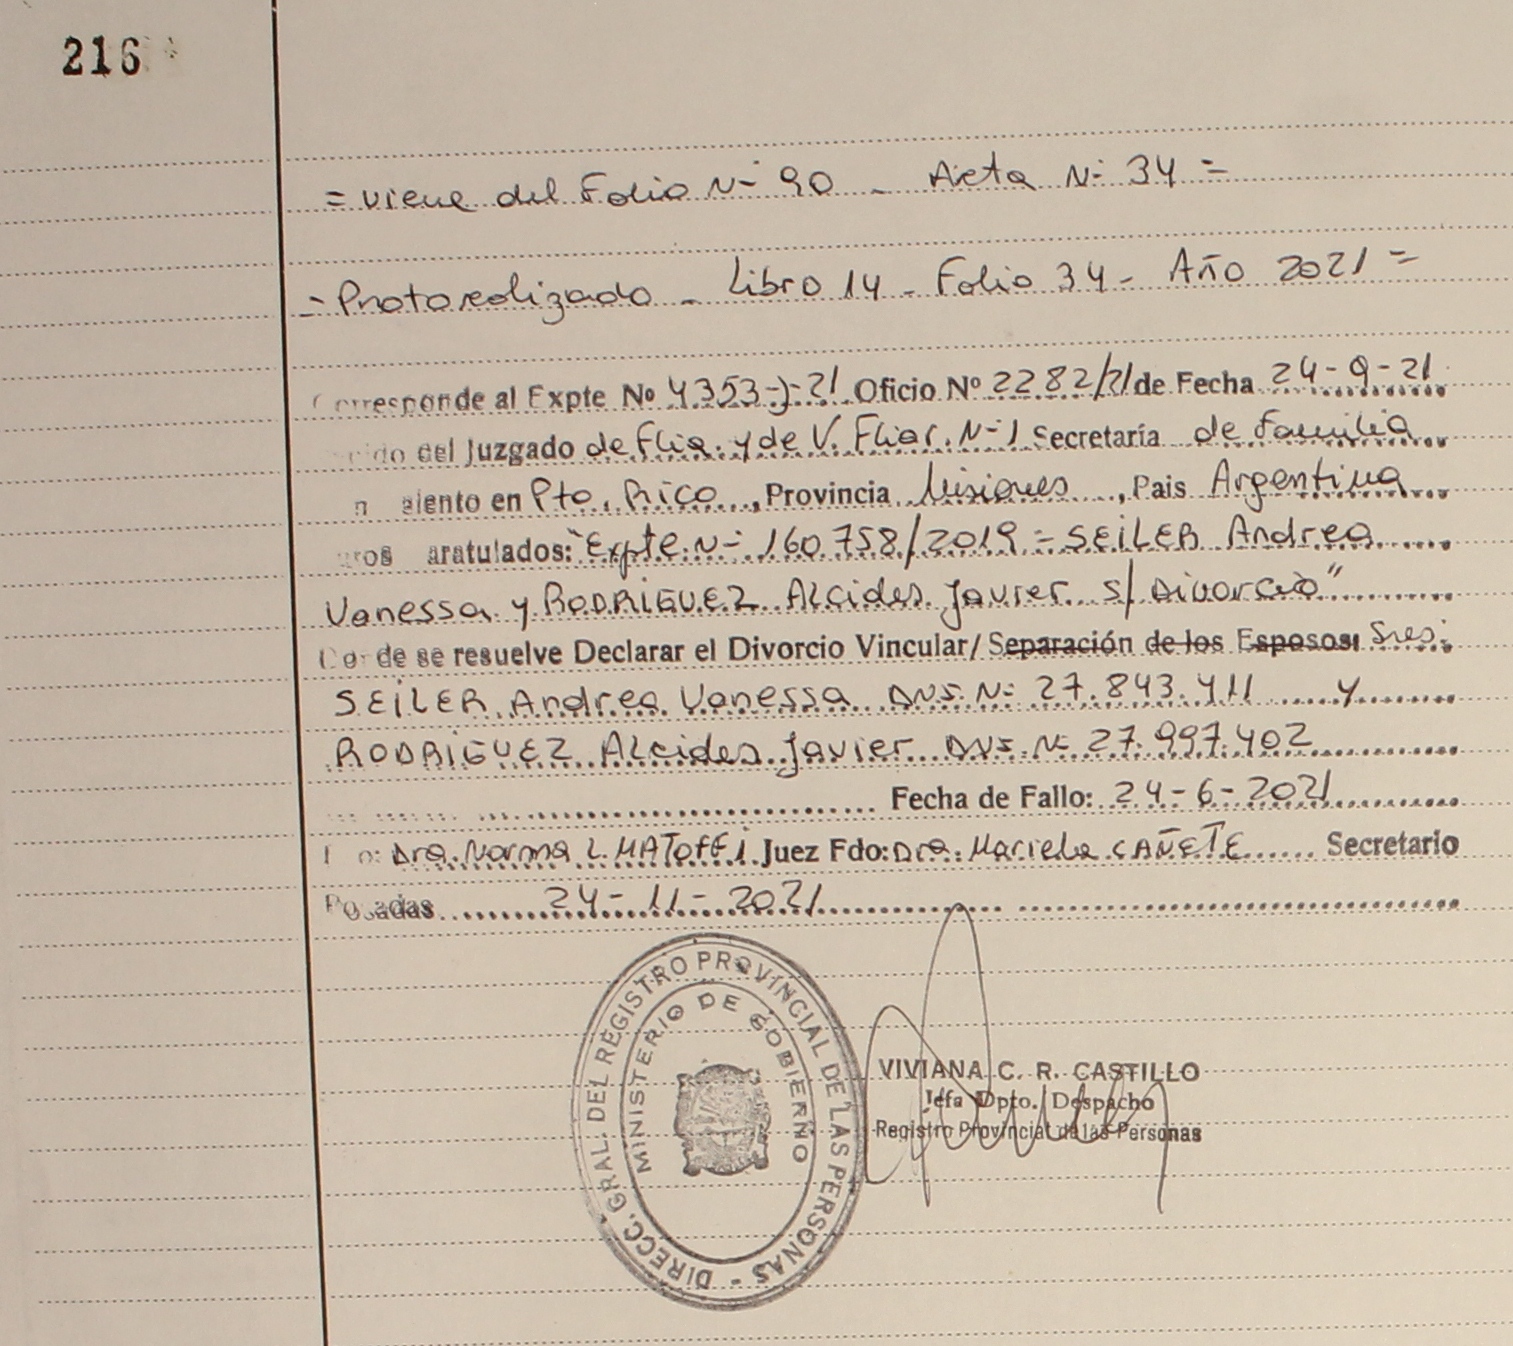 216
= viene del Folio N- 90 - Acta N- 34 =
- Protocolizado - Libro 14 - Folio 34 - Año 2021 =
Corresponde al Expte Nº 4353-J-21 Oficio Nº 2282/21 de Fecha 24-9-21
del Juzgado de Flia. y de V. Fliar. N-1 Secretaría de Familia
asiento en Pto. Rico, Provincia Misiones, Pais Argentina
aratulados: "Expte. N- 160.758/2019 = SEiLER Andrea
Vanessa y RODRiGUEZ Alcides Javier s/ Divorcio"
Donde se resuelve Declarar el Divorcio Vincular/ Separación de los Esposos: Sres:
SEiLER Andrea Vanessa DNI. N- 27.843.411 y
RODRiGUEZ Alcides Javier DNI. N- 27.997.402
Fecha de Fallo: 24-6-2021
Dra. Norma L MATOFFi Juez Fdo: Dra. Mariela CAÑETE Secretario
Posadas 24-11-2021
DIRECC. GRAL. DEL REGISTRO PROVINCIAL DE LAS PERSONAS -
MINISTERIO DE GOBIERNO
VIVIANA C. R. CASTILLO
Jefa Dpto. Despacho
Registro Provincial de las Personas